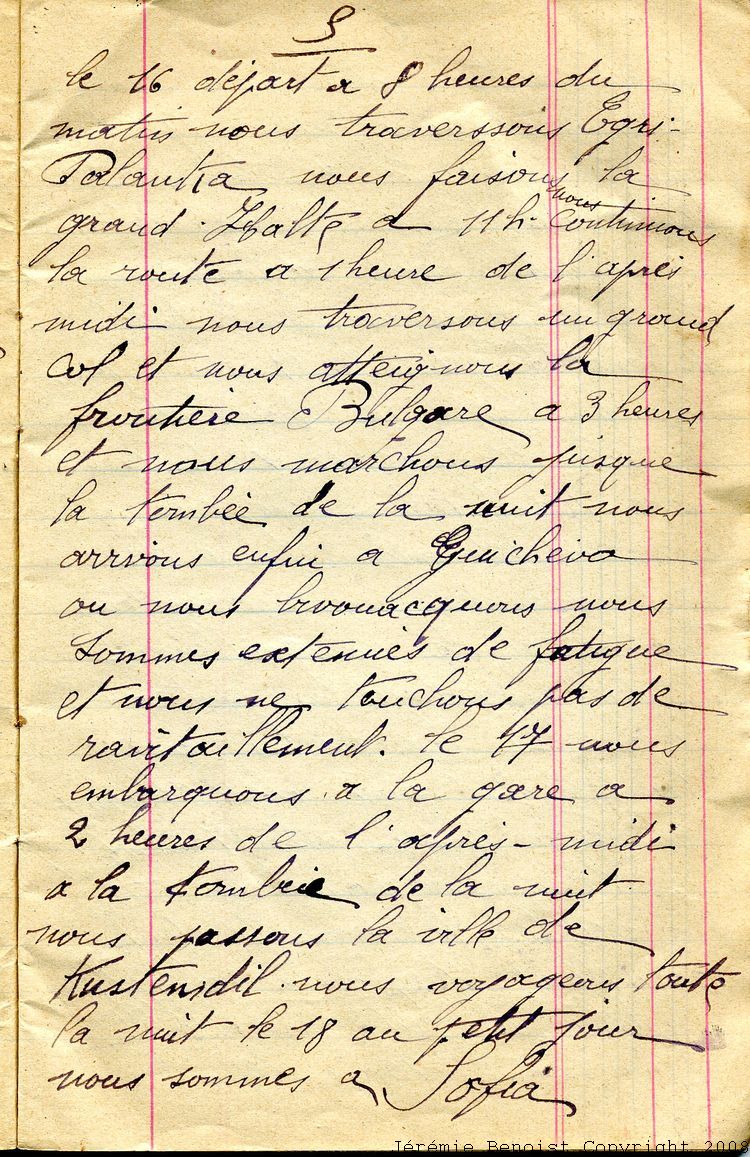 5
le 16 départ a 8 heures du
matin nous traverssons Egri-
Palanka nous faisons la
grand Halte a 11h. nous continuons
la route a 1 heure de l'après
midi nous traversons un grand
col et nous atteignons la
frontière Bulgare a 3 heures
et nous marchons jusque
la tombée de la nuit nous
arrivons enfin a Guichevo
ou nous bivouacquons nous
sommes extenués de fatigue
et nous ne touchons pas de
ravitaillement. le 17 nous
embarquons a la gare a
2 heures de l'après-midi
a la tombée de la nuit
nous passons la ville de
Kustendil nous voyageons toute
la nuit le 18 au petit jour
nous sommes a Sofia
Jérémie Benoist Copyright 2008